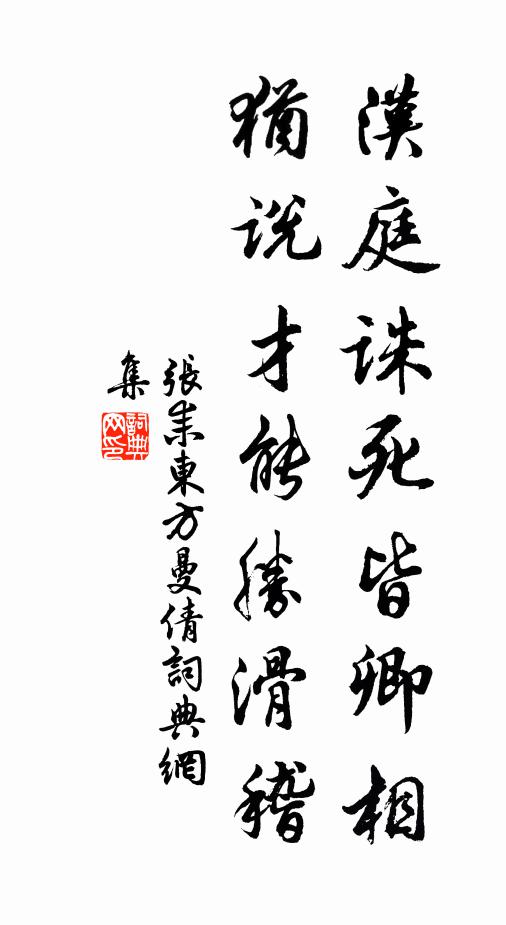 漢庭誅死皆卿相
猶說才能勝滑稽
張耒東方曼倩詞典網
集
詞典
网印